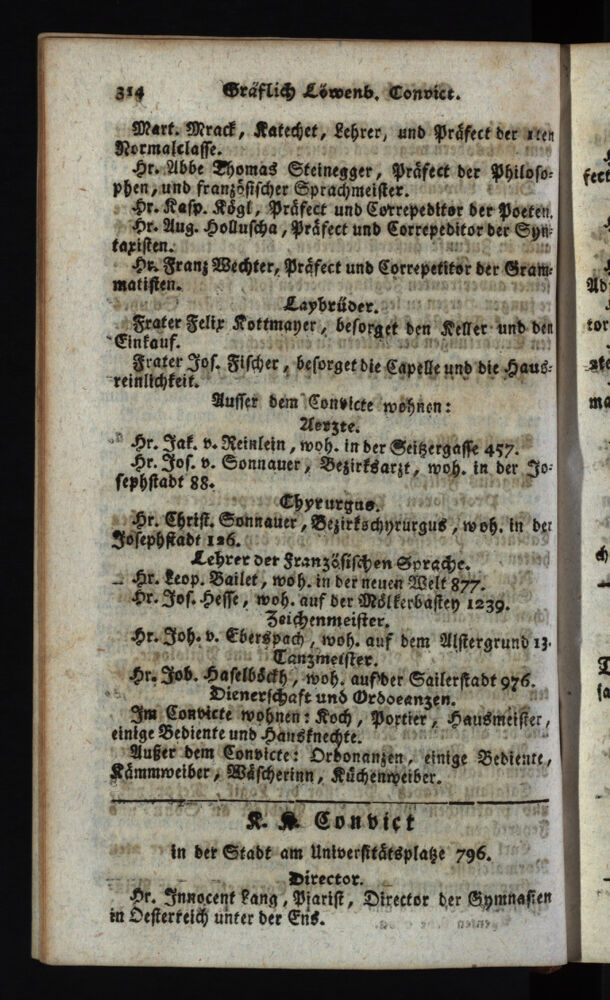 314 Gräflich Löwenb. Convict.
Mart. Mrack, Katechet, Lehrer, und Präfect der 1ten
Normalclasse.
Hr. Abbe Thomas Steinegger, Präfect der Philoso=
phen, und französischer Sprachmeister.
Hr. Kasp. Kögl, Präfect und Correpeditor der Poeten.
Hr. Aug. Holluscha, Präfect und Correpeditor der Syn=
taxisten.
Hr. Franz Wechter, Präfect und Correpetitor der Gram=
matisten.
Laybrüder.
Frater Felix Kottmayer, besorget den Keller und den
Einkauf.
Frater Jos. Fischer, besorget die Capelle und die Haus=
reinlichkeit.
Ausser dem Convicte wohnen:
Aerzte.
Hr. Jak. v. Reinlein, woh. in der Seitzergasse 457.
Hr. Jos. v. Sonnauer, Bezirksarzt, woh. in der Jo=
sephstadt 88.
Chyrurgus.
Hr. Christ. Sonnauer, Bezirkschyrurgus, woh. in der
Josephstadt 126.
Lehrer der Französischen Sprache.
Hr. Leop. Bailet, woh. in der neuen Welt 877.
Hr. Jos. Hesse, woh. auf der Mölkerbastey 1239.
Zeichenmeister.
Hr. Joh. v. Eberspach, woh. auf dem Alstergrund 13.
Tanzmeister.
Hr. Joh. Haselböckh, woh. auf der Sailerstadt 976.
Dienerschaft und Ordoeanzen.
Im Convicte wohnen: Koch, Portier, Hausmeister,
einige Bediente und Hausknechte.
Außer dem Convicte: Ordonanzen, einige Bediente,
Kämmweiber, Wäscherinn, Küchenweiber.
K. K. Convict
in der Stadt am Universitätsplatze 796.
Director.
Hr. Innocent Lang, Piarist, Director der Gymnasien
in Oesterreich unter der Ens.